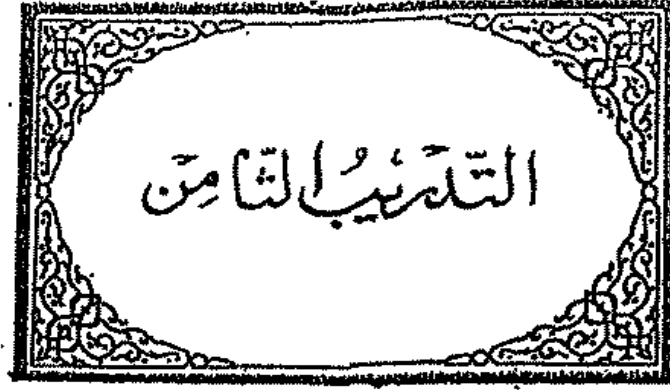 التَّدْرِيْبُ الثَّامِنْ